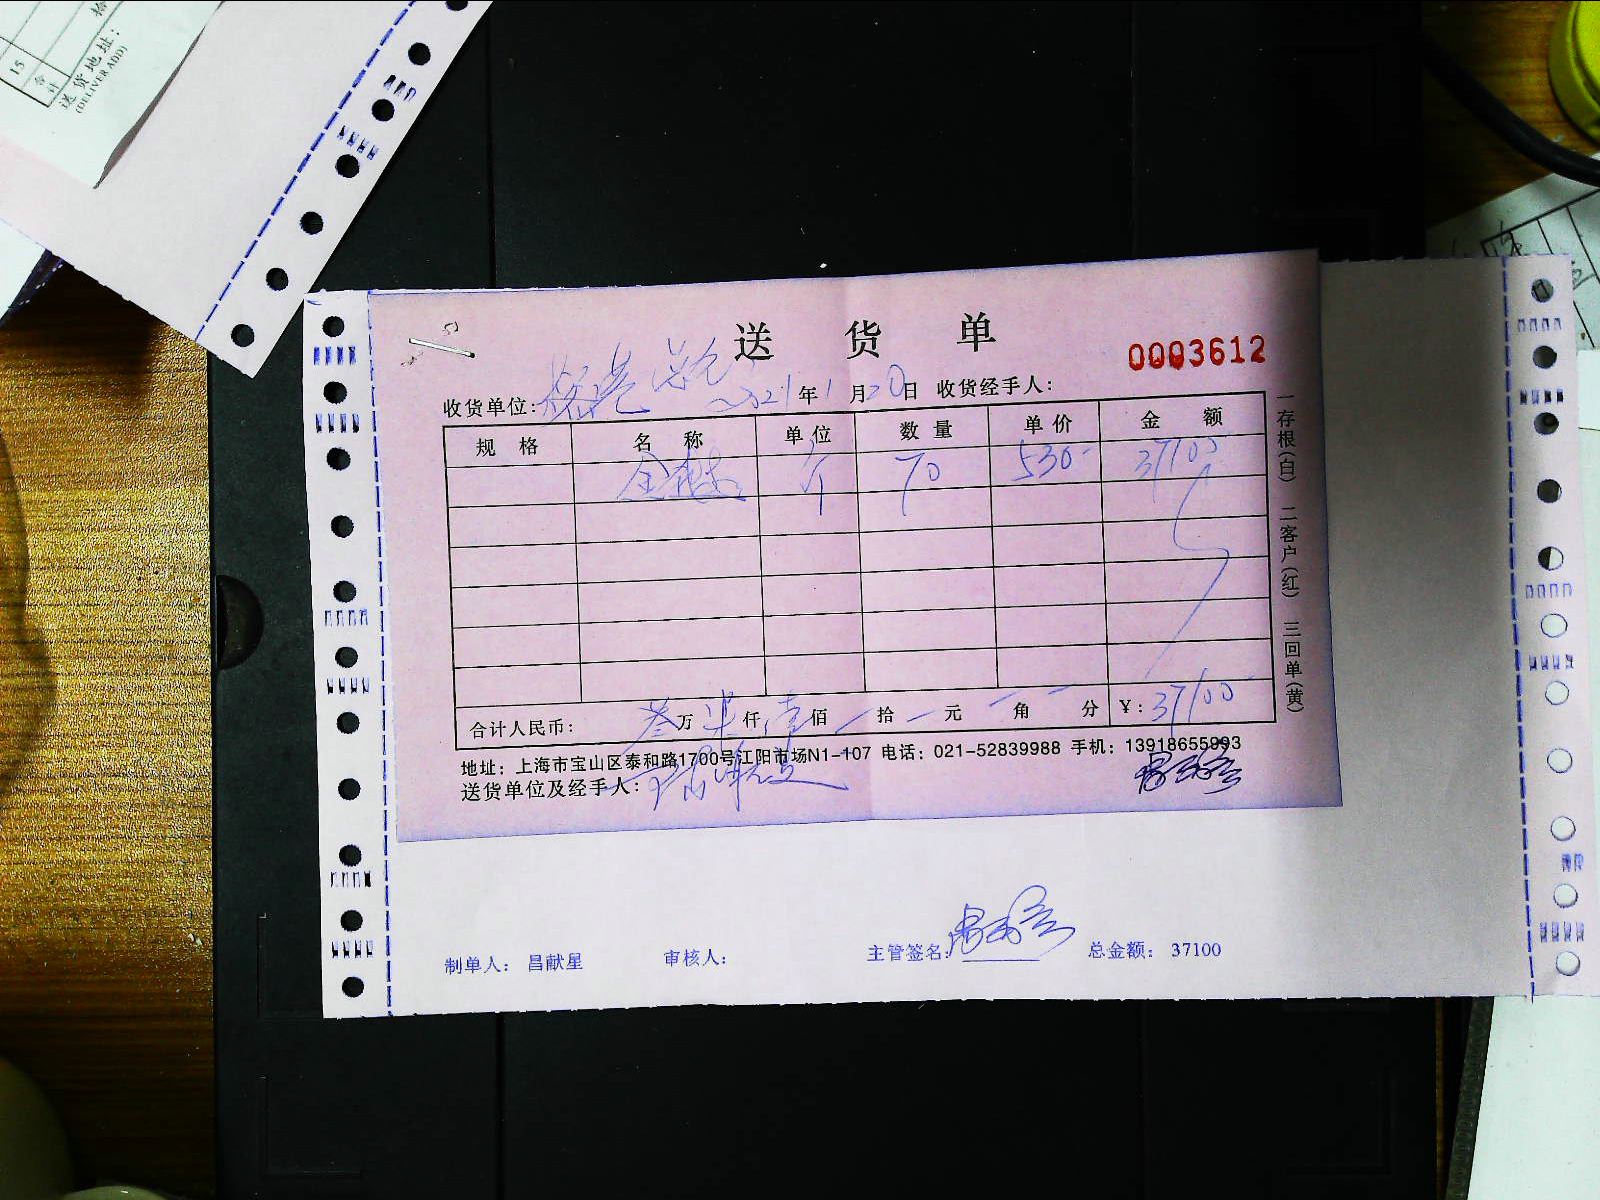 15
合计
送货地址:
(DELIVER ADD)
送 货 单
0003612
收货单位:
2021年1月20日 收货经手人:
规 格 名 称 单位 数 量 单 价 金 额
个 70 530- 37100
合计人民币: 叁万柒仟壹佰 拾 元 角 分 ¥: 37100
地址: 上海市宝山区泰和路1700号江阳市场N1-107 电话: 021-52839988 手机: 13918655993
送货单位及经手人:
一存根(白) 二客户(红) 三回单(黄)
制单人: 昌献星 审核人: 主管签名: 总金额: 37100